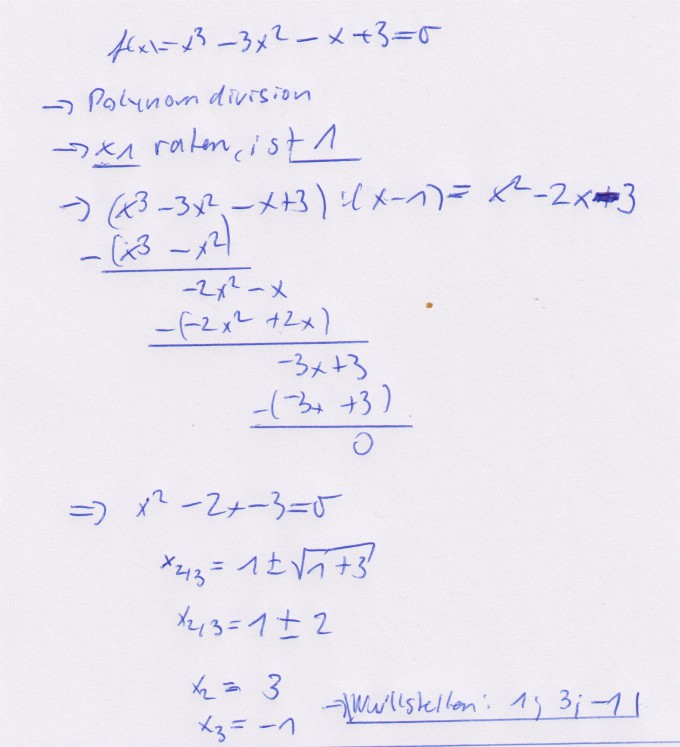 f(x)=x³ -3x² - x +3=0
→ Polynomdivision
→ x1 raten, ist 1
→ (x³ -3x² - x+3) :(x-1) = x² -2x-3
-(x³ - x²)
-2x² - x
-(-2x² +2x)
-3x+3
-(-3x +3)
0
⇒ x² -2x-3=0
x₂,₃ = 1 ± √1+3
x₂,₃ = 1 ± 2
x₂ = 3
x₃ = -1 → Nullstellen: 1; 3; -1